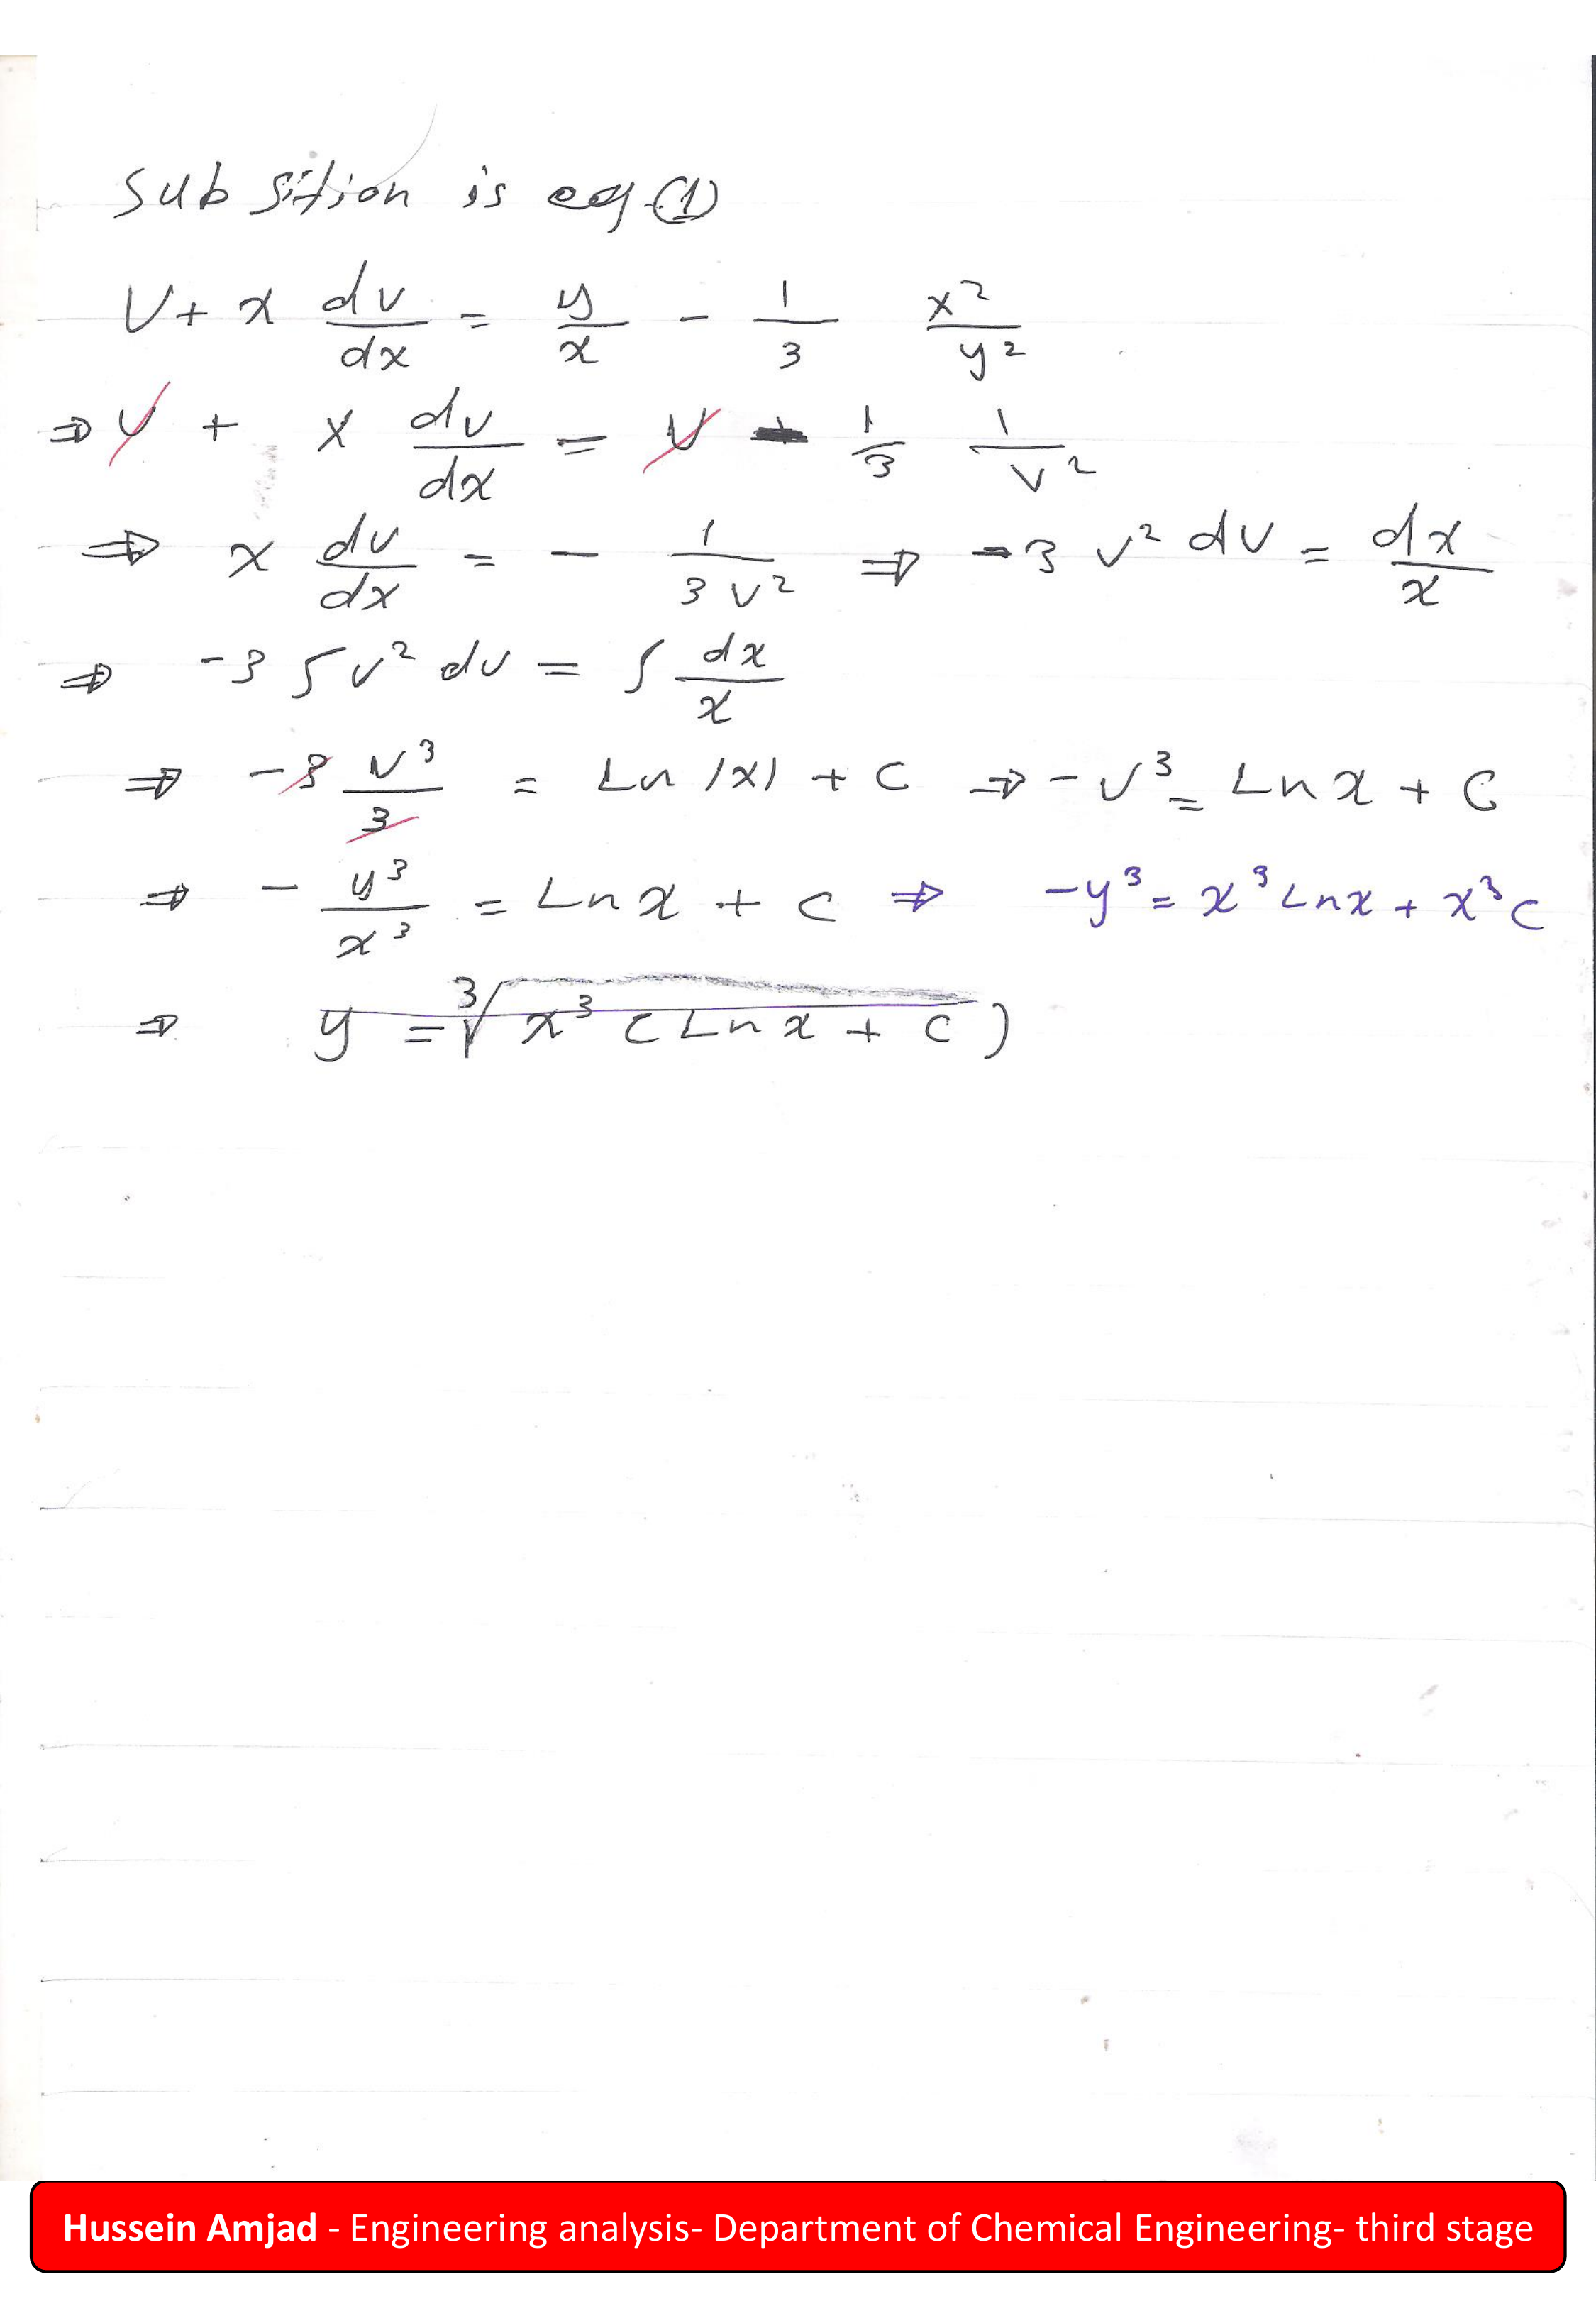 sub sition is eq (1)
V + x dv/dx = y/x - 1/3 x²/y²
⇒ V + x dv/dx = V - 1/3 1/v²
⇒ x dv/dx = - 1/3v² ⇒ -3 v² dv = dx/x
⇒ -3 ∫v² dv = ∫ dx/x
⇒ -3 v³/3 = Ln |x| + C ⇒ -v³ = Ln x + C
⇒ - y³/x³ = Ln x + C ⇒ -y³ = x³ Ln x + x³ C
⇒ y = ³√x³ (Ln x + C)
Hussein Amjad - Engineering analysis- Department of Chemical Engineering- third stage